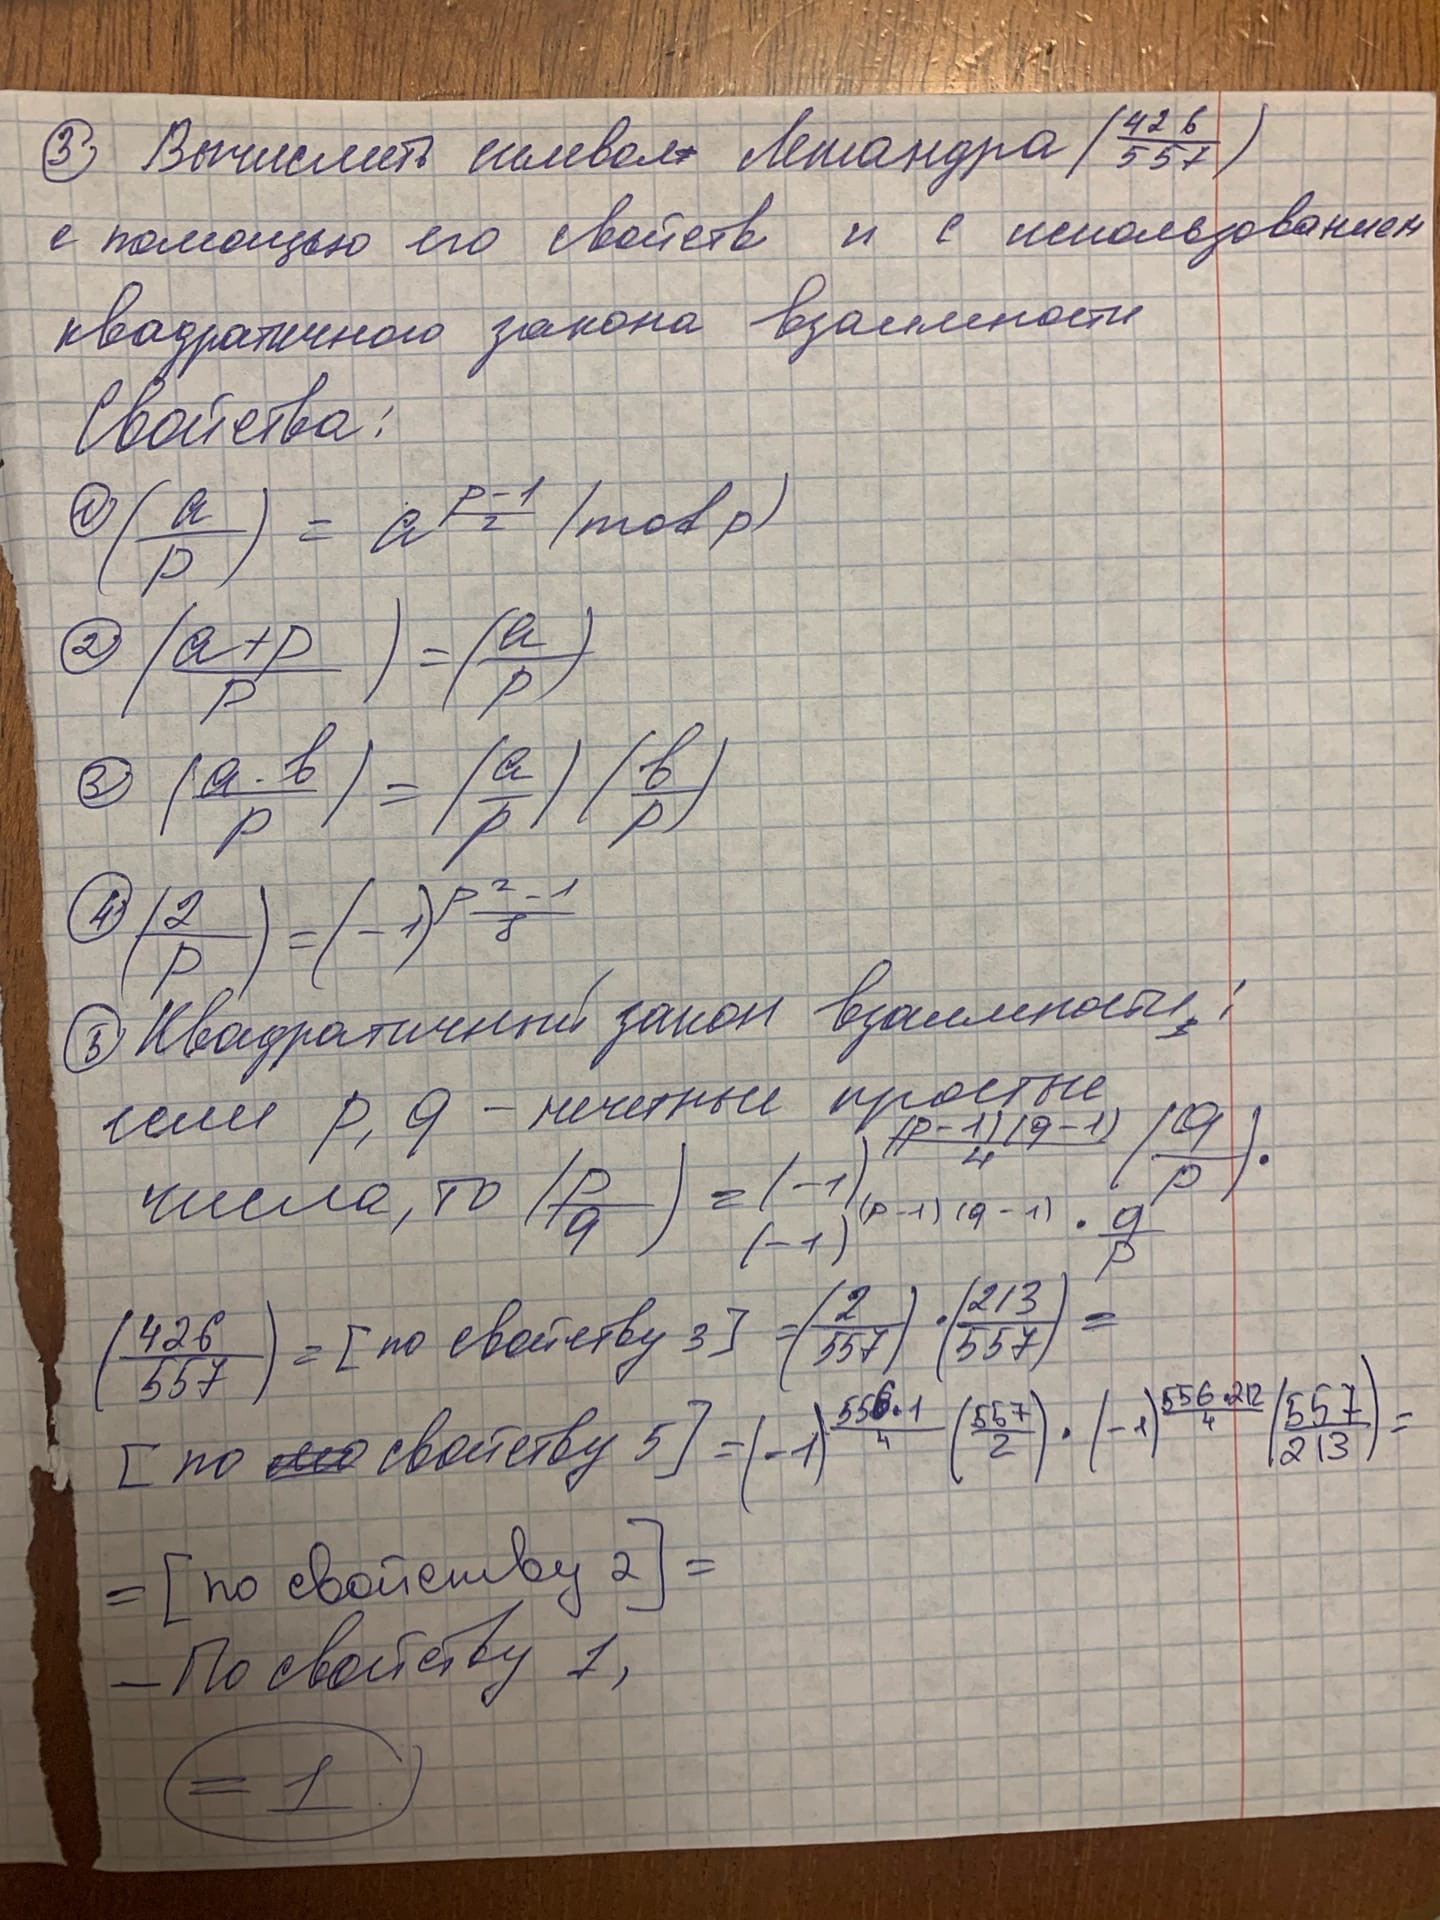 ③ Вычислить символ Лежандра (426/557)
с помощью его свойств и с использованием
квадратичного закона взаимности
Свойства:
① (a/p) = a^((p-1)/2) (mod p)
② ((a+p)/p) = (a/p)
③ ((a·b)/p) = (a/p) (b/p)
④ (2/p) = (-1)^((p²-1)/8)
⑤ Квадратичный закон взаимности:
если p, q – нечетные простые
числа, то (p/q) = (-1)^((p-1)(q-1)/4) (q/p).
(-1)^((p-1)(q-1)) · q/p
(426/557) = [по свойству 3] = (2/557) · (213/557) =
[по свойству 5] = (-1)^(556·1/4) (557/2) · (-1)^(556·212/4) (557/213) =
= [по свойству 2] =
– По свойству 1,
= 1